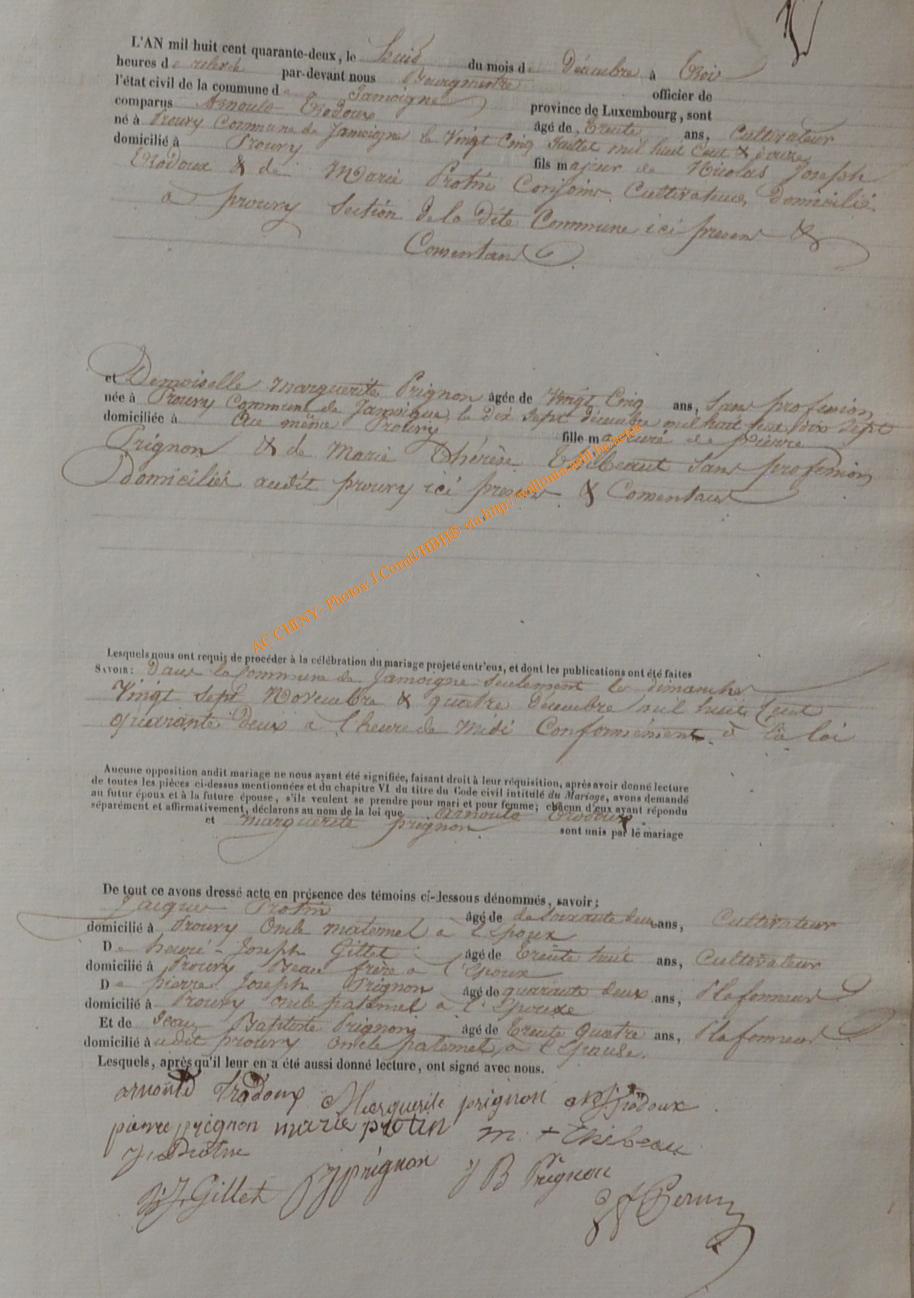 L'AN mil huit cent quarante-deux, le huit du mois de Décembre à Troi
heures de relevée par-devant nous Bourgmestre officier de
l'état civil de la commune de Jamoigne province de Luxembourg, sont
comparus Arnould Trodoux âgé de Trente ans, Cultivateur
né à Prouvy Commune de Jamoigne le Vingt Cinq Juillet mil huit Cent &
domicilié à Prouvy fils majeur de Nicolas Joseph
Trodoux & de Marie Protin Conjoins Cultivateurs Domiciliés
à prouvy Section de la dite Commune ici presens &
Consentans
et Demoiselle Marguerite Prignon âgée de Vingt Cinq ans, Sans profession
née à Prouvy Commune de Jamoigne le Dix Sept Décembre mil huit Cent dix Sept
domiciliée à Au même Prouvy fille majeure de pierre
Prignon & de Marie Thérèse Thilbeaut Sans profession
Domiciliés audit prouvy ici presens & Consentans
AC CHINY- Photos J.Cornil/HBH® via http:
Lesquels nous ont requis de procéder à la célébration du mariage projeté entr'eux, et dont les publications ont été faites
SAVOIR: Dans la Commune de Jamoigne Seulement les dimanches
Vingt Sept Novembre & quatre Décembre mil huit Cent
quarante Deux a l'heure de Midi Conformément à la loi
Aucune opposition audit mariage ne nous ayant été signifiée, faisant droit à leur réquisition, après avoir donné lecture
de toutes les pièces ci-dessus mentionnées et du chapitre VI du titre du Code civil intitulé du Mariage, avons demandé
au futur époux et à la future épouse, s'ils veulent se prendre pour mari et pour femme; chacun d'eux ayant répondu
séparément et affirmativement, déclarons au nom de la loi que Arnould Trodoux
et Marguerite prignon sont unis par le mariage
De tout ce avons dressé acte en présence des témoins ci-dessous dénommés, savoir;
Jacques Protin âgé de de Soixante deux ans, Cultivateur
domicilié à Prouvy Oncle maternel à l'Epoux
De henri-Joseph Gillet âgé de Trente huit ans, Cultivateur
domicilié à Prouvy Beau frère a l'Epoux
De pierre Joseph Prignon âgé de quarante deux ans, Plafonneur
domicilié à Prouvy oncle paternel a l'Epouse
Et de Jean Baptiste Prignon âgé de Trente quatre ans, Plafonneur
domicilié à audit prouvy Oncle paternel, a l'Epouse.
Lesquels, après qu'il leur en a été aussi donné lecture, ont signé avec nous.
arnould Trodoux Marguerite prignon Trodoux
pierre prignon marie protin m + Thibeau
J Protin
H J Gillet PJ prignon J B Prignon